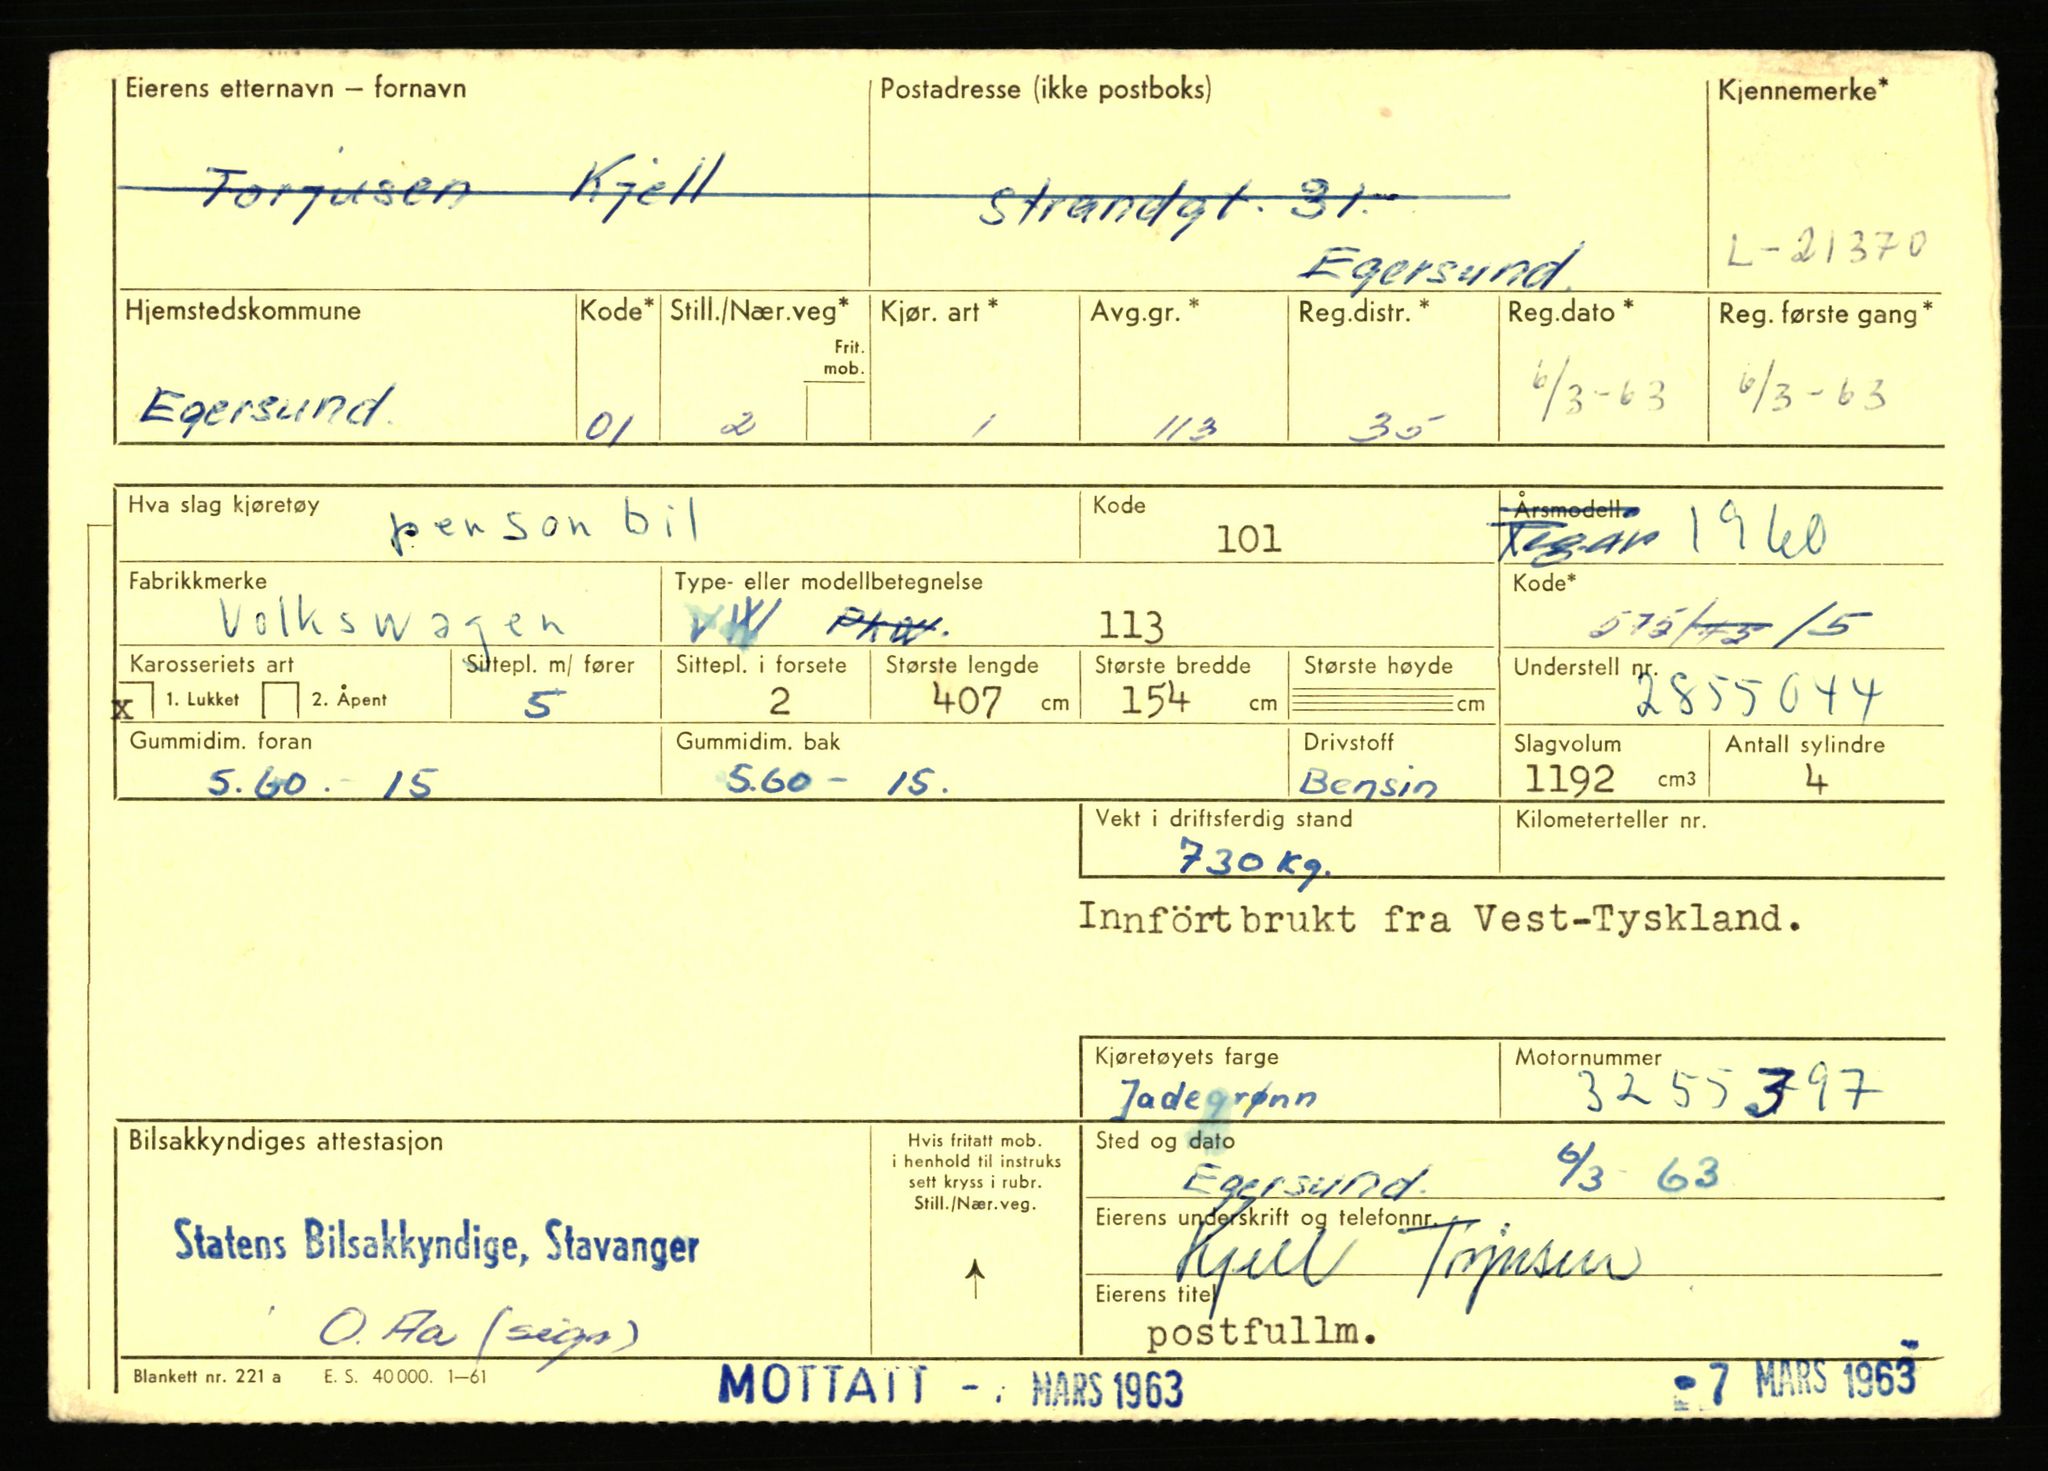 Eierens etternavn – fornavn Postadresse (ikke postboks) Kjennemerke*
Torjusen Kjell Strandgt. 31.
Egersund. L-21370
Hjemstedskommune Kode* Still./Nær.veg* Kjør. art* Avg.gr.* Reg.distr.* Reg.dato* Reg. første gang*
Frit.
mob.
Egersund. 01 2 1 113 35 6/3-63 6/3-63
Hva slag kjøretøy personbil Kode 101 Årsmodell 1960
Fabrikkmerke Type- eller modellbetegnelse Kode*
Volkswagen VW PKW. 113 575/ /5
Karosseriets art Sittepl. m/ fører Sittepl. i forsete Største lengde Største bredde Største høyde Understell nr.
x 1. Lukket 2. Åpent 5 2 407 cm 154 cm cm 2855044
Gummidim. foran Gummidim. bak Drivstoff Slagvolum Antall sylindre
5.60.-15 5.60-15. Bensin 1192 cm3 4
Vekt i driftsferdig stand Kilometerteller nr.
730 kg.
Innfört brukt fra Vest-Tyskland.
Kjøretøyets farge Motornummer
Jadegrønn 3255397
Bilsakkyndiges attestasjon
Hvis fritatt mob.
i henhold til instruks
sett kryss i rubr.
Still./Nær.veg.
Sted og dato
Egersund. 6/3-63
Eierens underskrift og telefonnr.
Kjell Torjusen
Statens Bilsakkyndige, Stavanger
O. Aa (sign)
Eierens titel
postfullm.
Blankett nr. 221 a E. S. 40 000. 1–61
MOTTATT - MARS 1963
7 MARS 1963